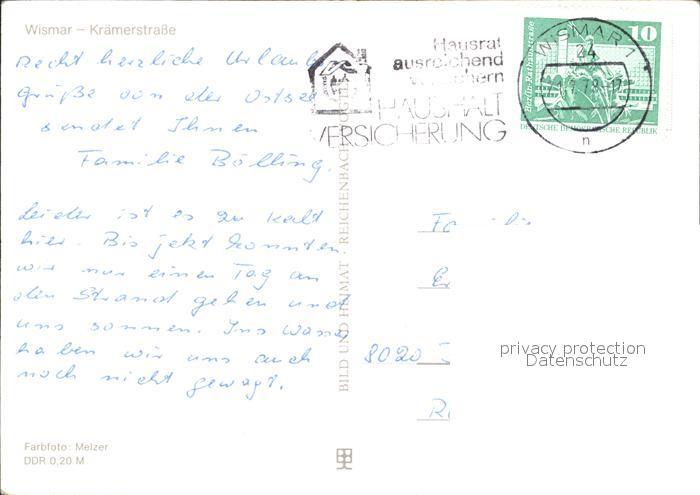 Wismar – Krämerstraße
recht herzliche Urlaubs
grüße von der Ostsee
sendet Ihnen
Familie Bölling.
Leider ist es zu kalt
hier. Bis jetzt konnten
wir nur einen Tag an
den Strand gehen und
uns sonnen. Ins Wasser
haben wir uns auch
noch nicht gewagt.
Farbfoto: Melzer
DDR 0,20 M
BILD UND HEIMAT · REICHENBACH
Hausrat
ausreichend
versichern
HAUSHALT
VERSICHERUNG
WISMAR 1
24
n
10
Berlin, Rathausstraße
DEUTSCHE DEMOKRATISCHE REPUBLIK
8020
privacy protection
Datenschutz